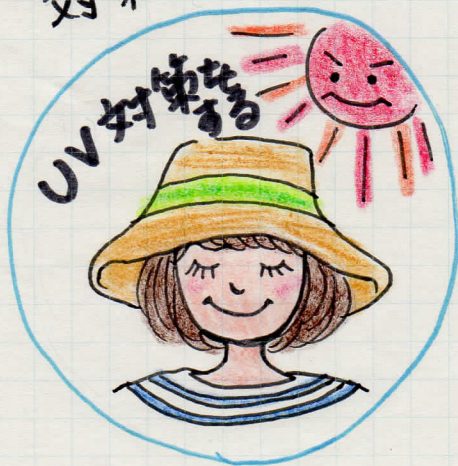 UV対策をする